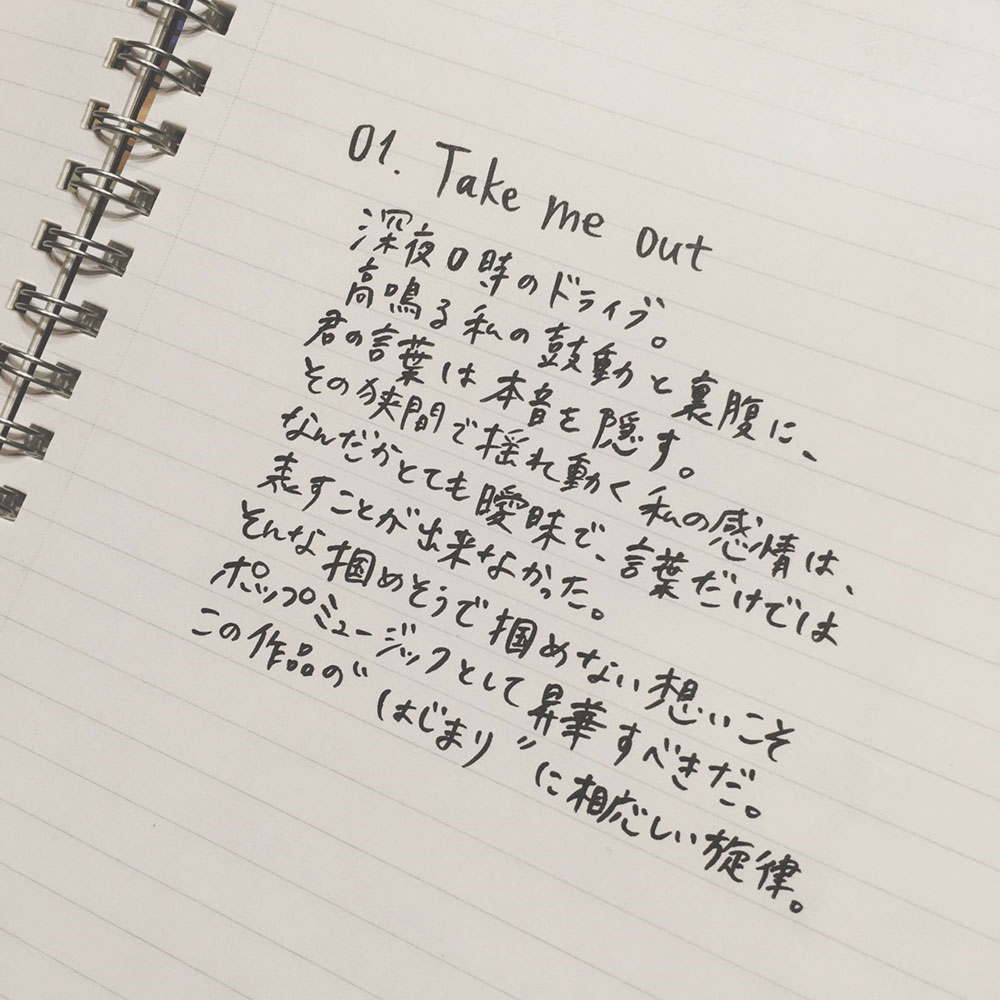 01. Take me out
深夜0時のドライブ。
高鳴る私の鼓動と裏腹に、
君の言葉は本音を隠す。
その狭間で揺れ動く私の感情は、
なんだかとても曖昧で、言葉だけでは
表すことが出来なかった。
そんな掴めそうで掴めない想いこそ
ポップミュージックとして昇華すべきだ。
この作品の“はじまり”に相応しい旋律。